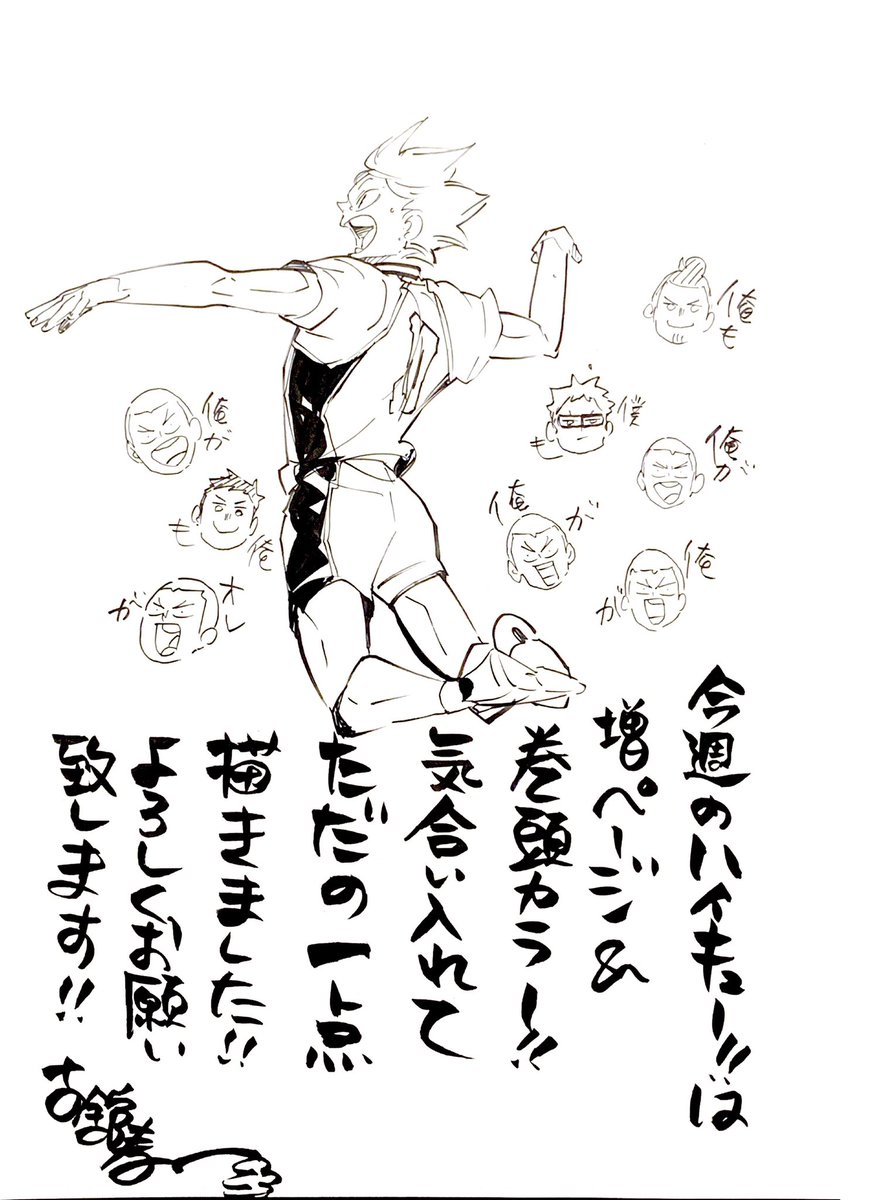 俺も
僕も
俺が
俺が
俺が
俺が
俺も
オレが
今週のハイキュー!!は
増ページ&
巻頭カラー!!
気合い入れて
ただの一点
描きました!!
よろしくお願い
致します!!
古舘春一